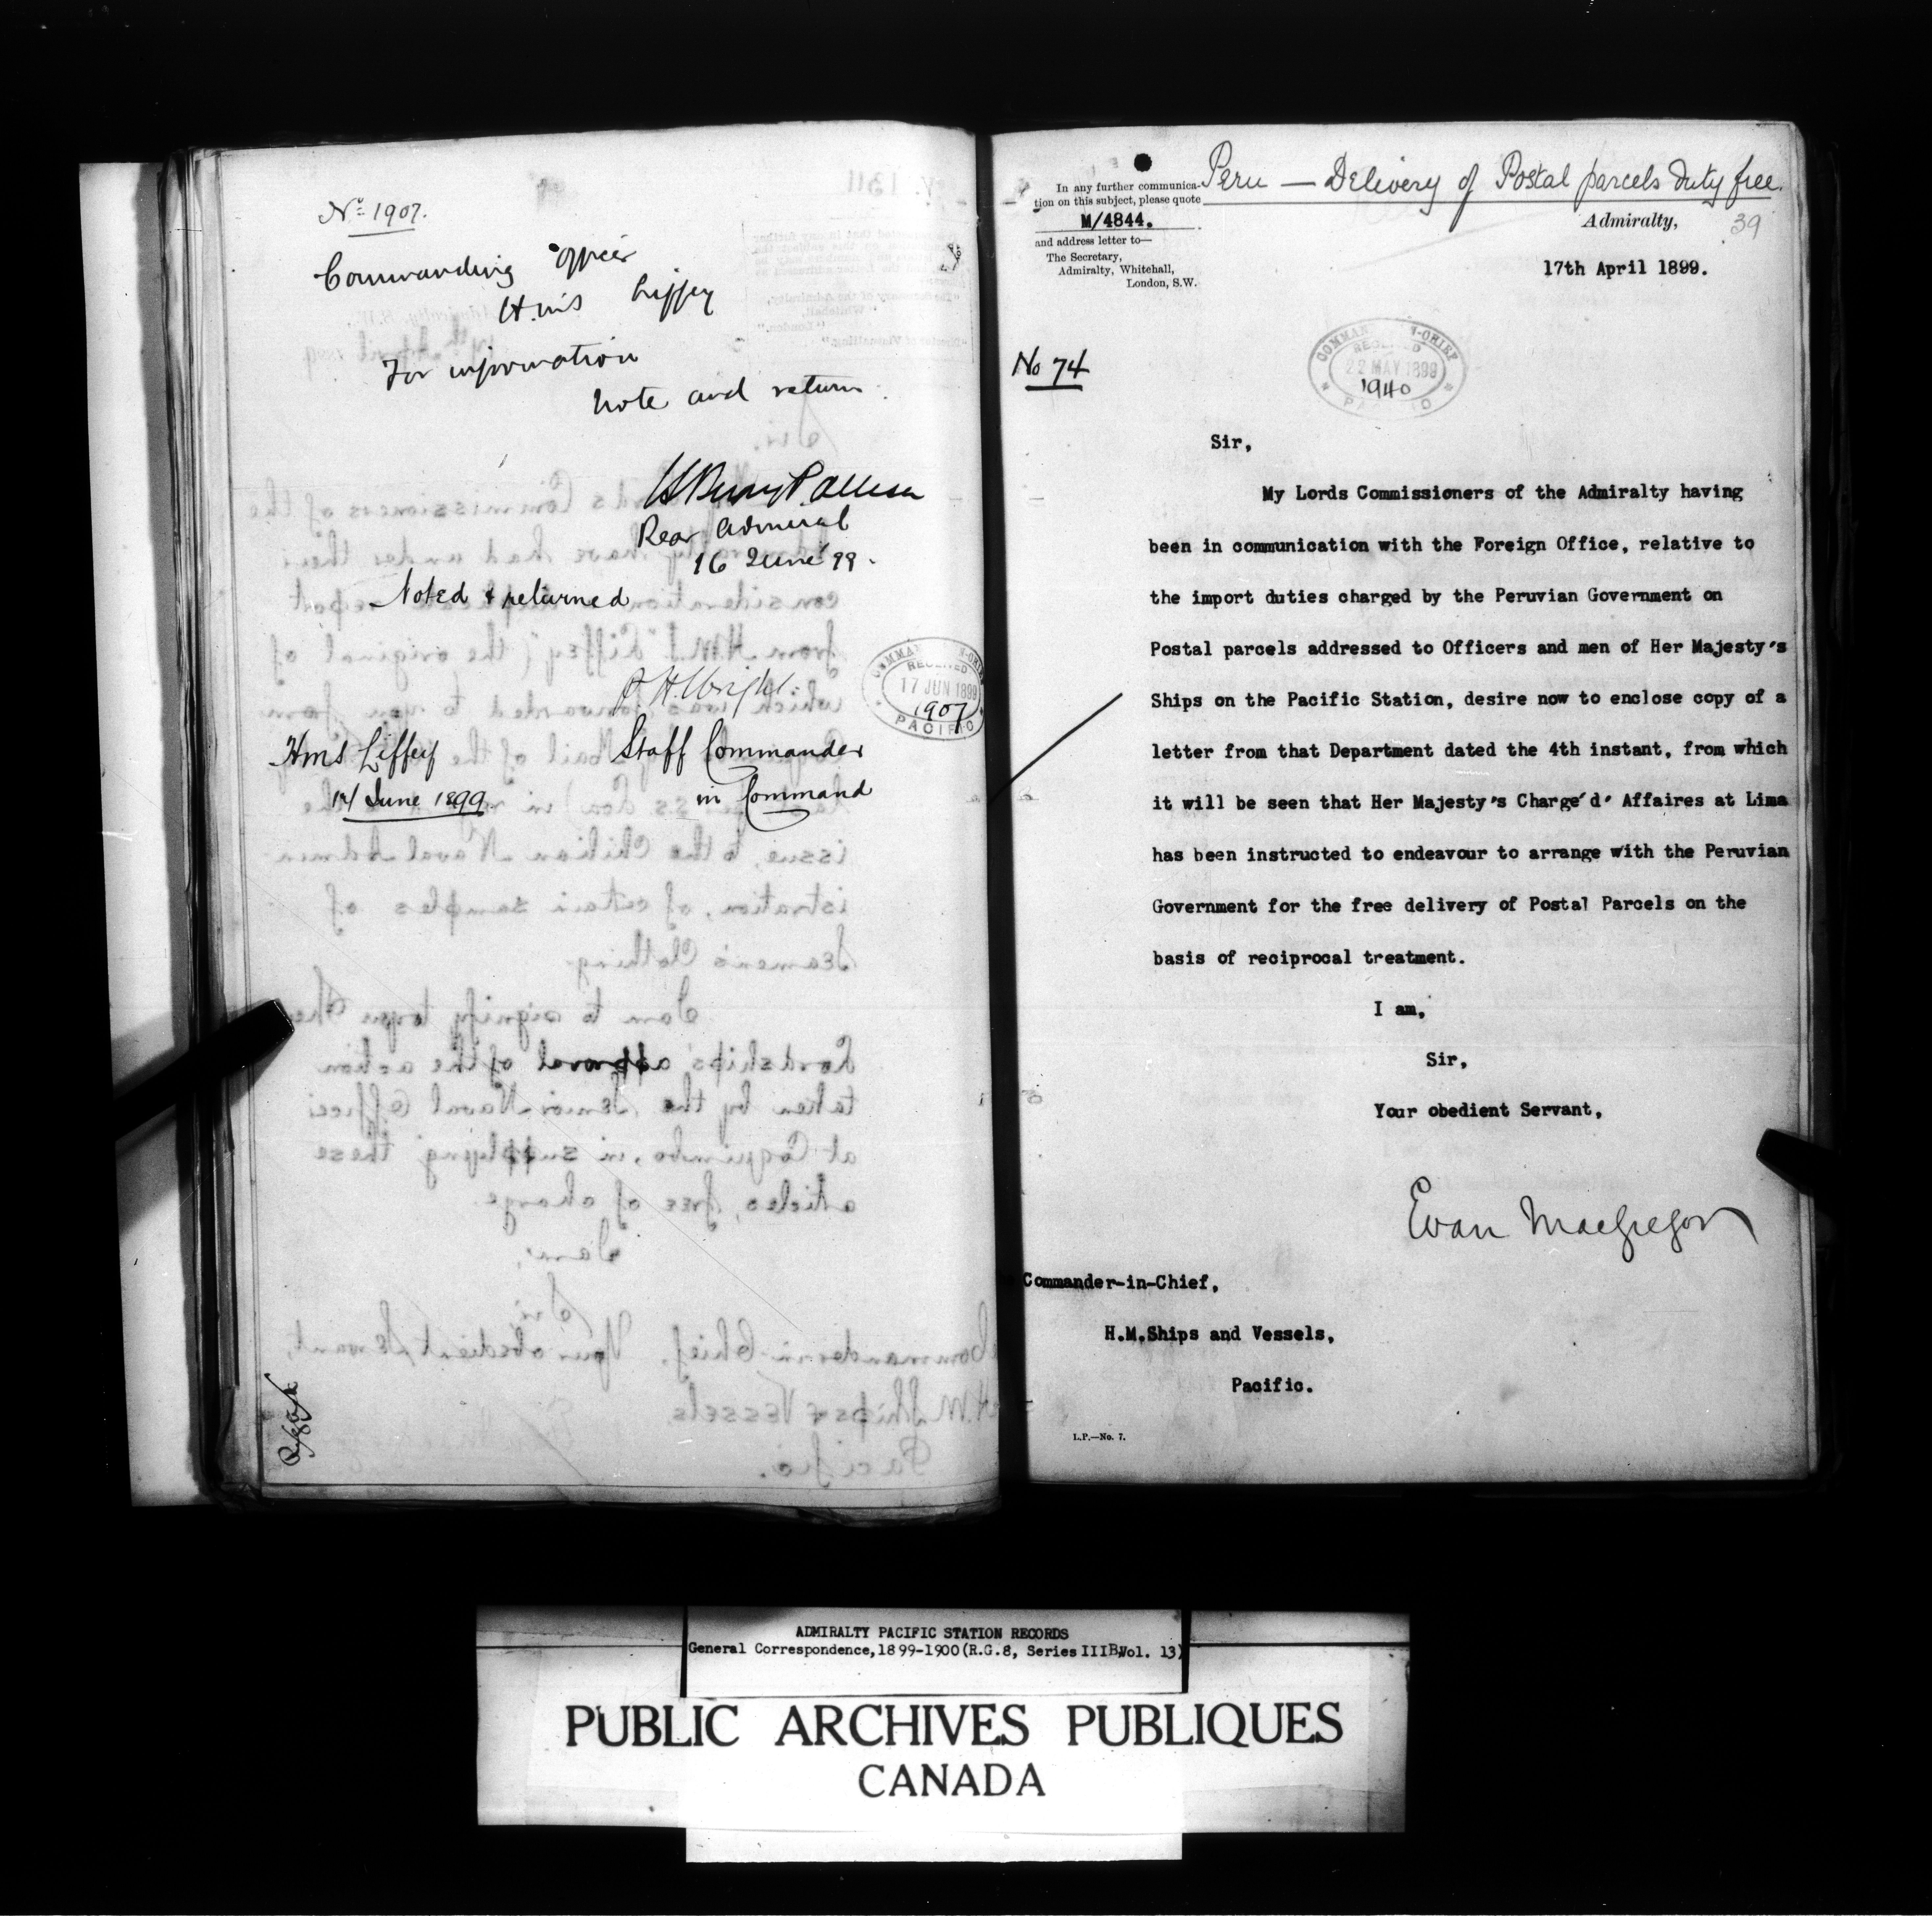 No 1907.
Commanding Officer
H.M.S Liffey
For information
Note and return.
Rear Admiral
16 June 99.
Noted & returned
COMMANDER-IN-CHIEF
RECEIVED
17 JUN 1899
1907
PACIFIC
Staff Commander
in Command
HMS Liffey
14 June 1899.
Peru — Delivery of Postal parcels duty free.
In any further communica-
tion on this subject, please quote
M/4844.
and address letter to—
The Secretary,
Admiralty, Whitehall,
London, S.W.
Admiralty,
39
17th April 1899.
No 74
COMMANDER-IN-CHIEF
RECEIVED
22 MAY 1899
1940
PACIFIC
Sir,
My Lords Commissioners of the Admiralty having
been in communication with the Foreign Office, relative to
the import duties charged by the Peruvian Government on
Postal parcels addressed to Officers and men of Her Majesty's
Ships on the Pacific Station, desire now to enclose copy of a
letter from that Department dated the 4th instant, from which
it will be seen that Her Majesty's Charge'd' Affaires at Lima
has been instructed to endeavour to arrange with the Peruvian
Government for the free delivery of Postal Parcels on the
basis of reciprocal treatment.
I am,
Sir,
Your obedient Servant,
Evan MacGregor
Commander-in-Chief,
H.M.Ships and Vessels,
Pacific.
L.P.—No. 7.
ADMIRALTY PACIFIC STATION RECORDS
General Correspondence,1899-1900(R.G.8, Series IIIB,Vol. 13)
PUBLIC ARCHIVES PUBLIQUES
CANADA